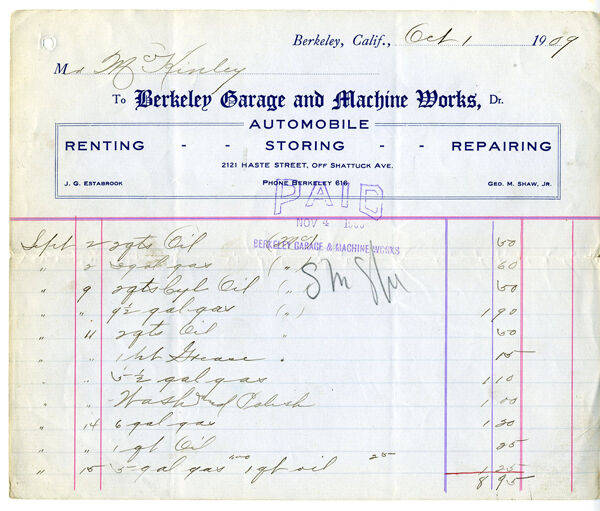 Berkeley, Calif., Oct 1 1909
Mr McKinley
To Berkeley Garage and Machine Works, Dr.
AUTOMOBILE
RENTING - - STORING - - REPAIRING
2121 HASTE STREET, OFF SHATTUCK AVE.
J. G. ESTABROOK PHONE BERKELEY 616 GEO. M. SHAW, JR.
PAID
NOV 4 1909
BERKELEY GARAGE & MACHINE WORKS
Sept 2 2 qts Oil (Mc) 50
" 2 3 gal gas (") 60
" 9 2 qts Cyl Oil (") 50
" " 9½ gal gas (") 1 90
" 11 2 qts Oil " 50
" " 1 lb Grease " 15
" " 5½ gal gas 1 10
" " Wash and Polish 1 00
" 14 6 gal gas 1 20
" " 1 qt Oil 25
" 15 5 gal gas 1.00 1 qt oil 25 1 25
8 95